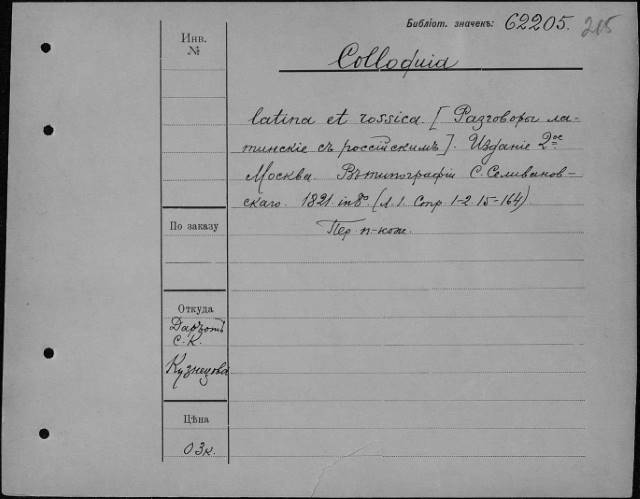 Библіот. значекъ: 62205. 215
Инв.
№
Colloquia
latina et rossica. [Разговоры ла-
тинскіе съ россійскимъ]. Изданіе 2ое
Москва. Въ типографіи С. Селиванов-
скаго. 1821 in 8° (Л. 1. Стр. 1-2. 15-164)
Пер. п-кож.
По заказу
Откуда
Даръ отъ
С. К.
Кузнецова
Цѣна
03к.